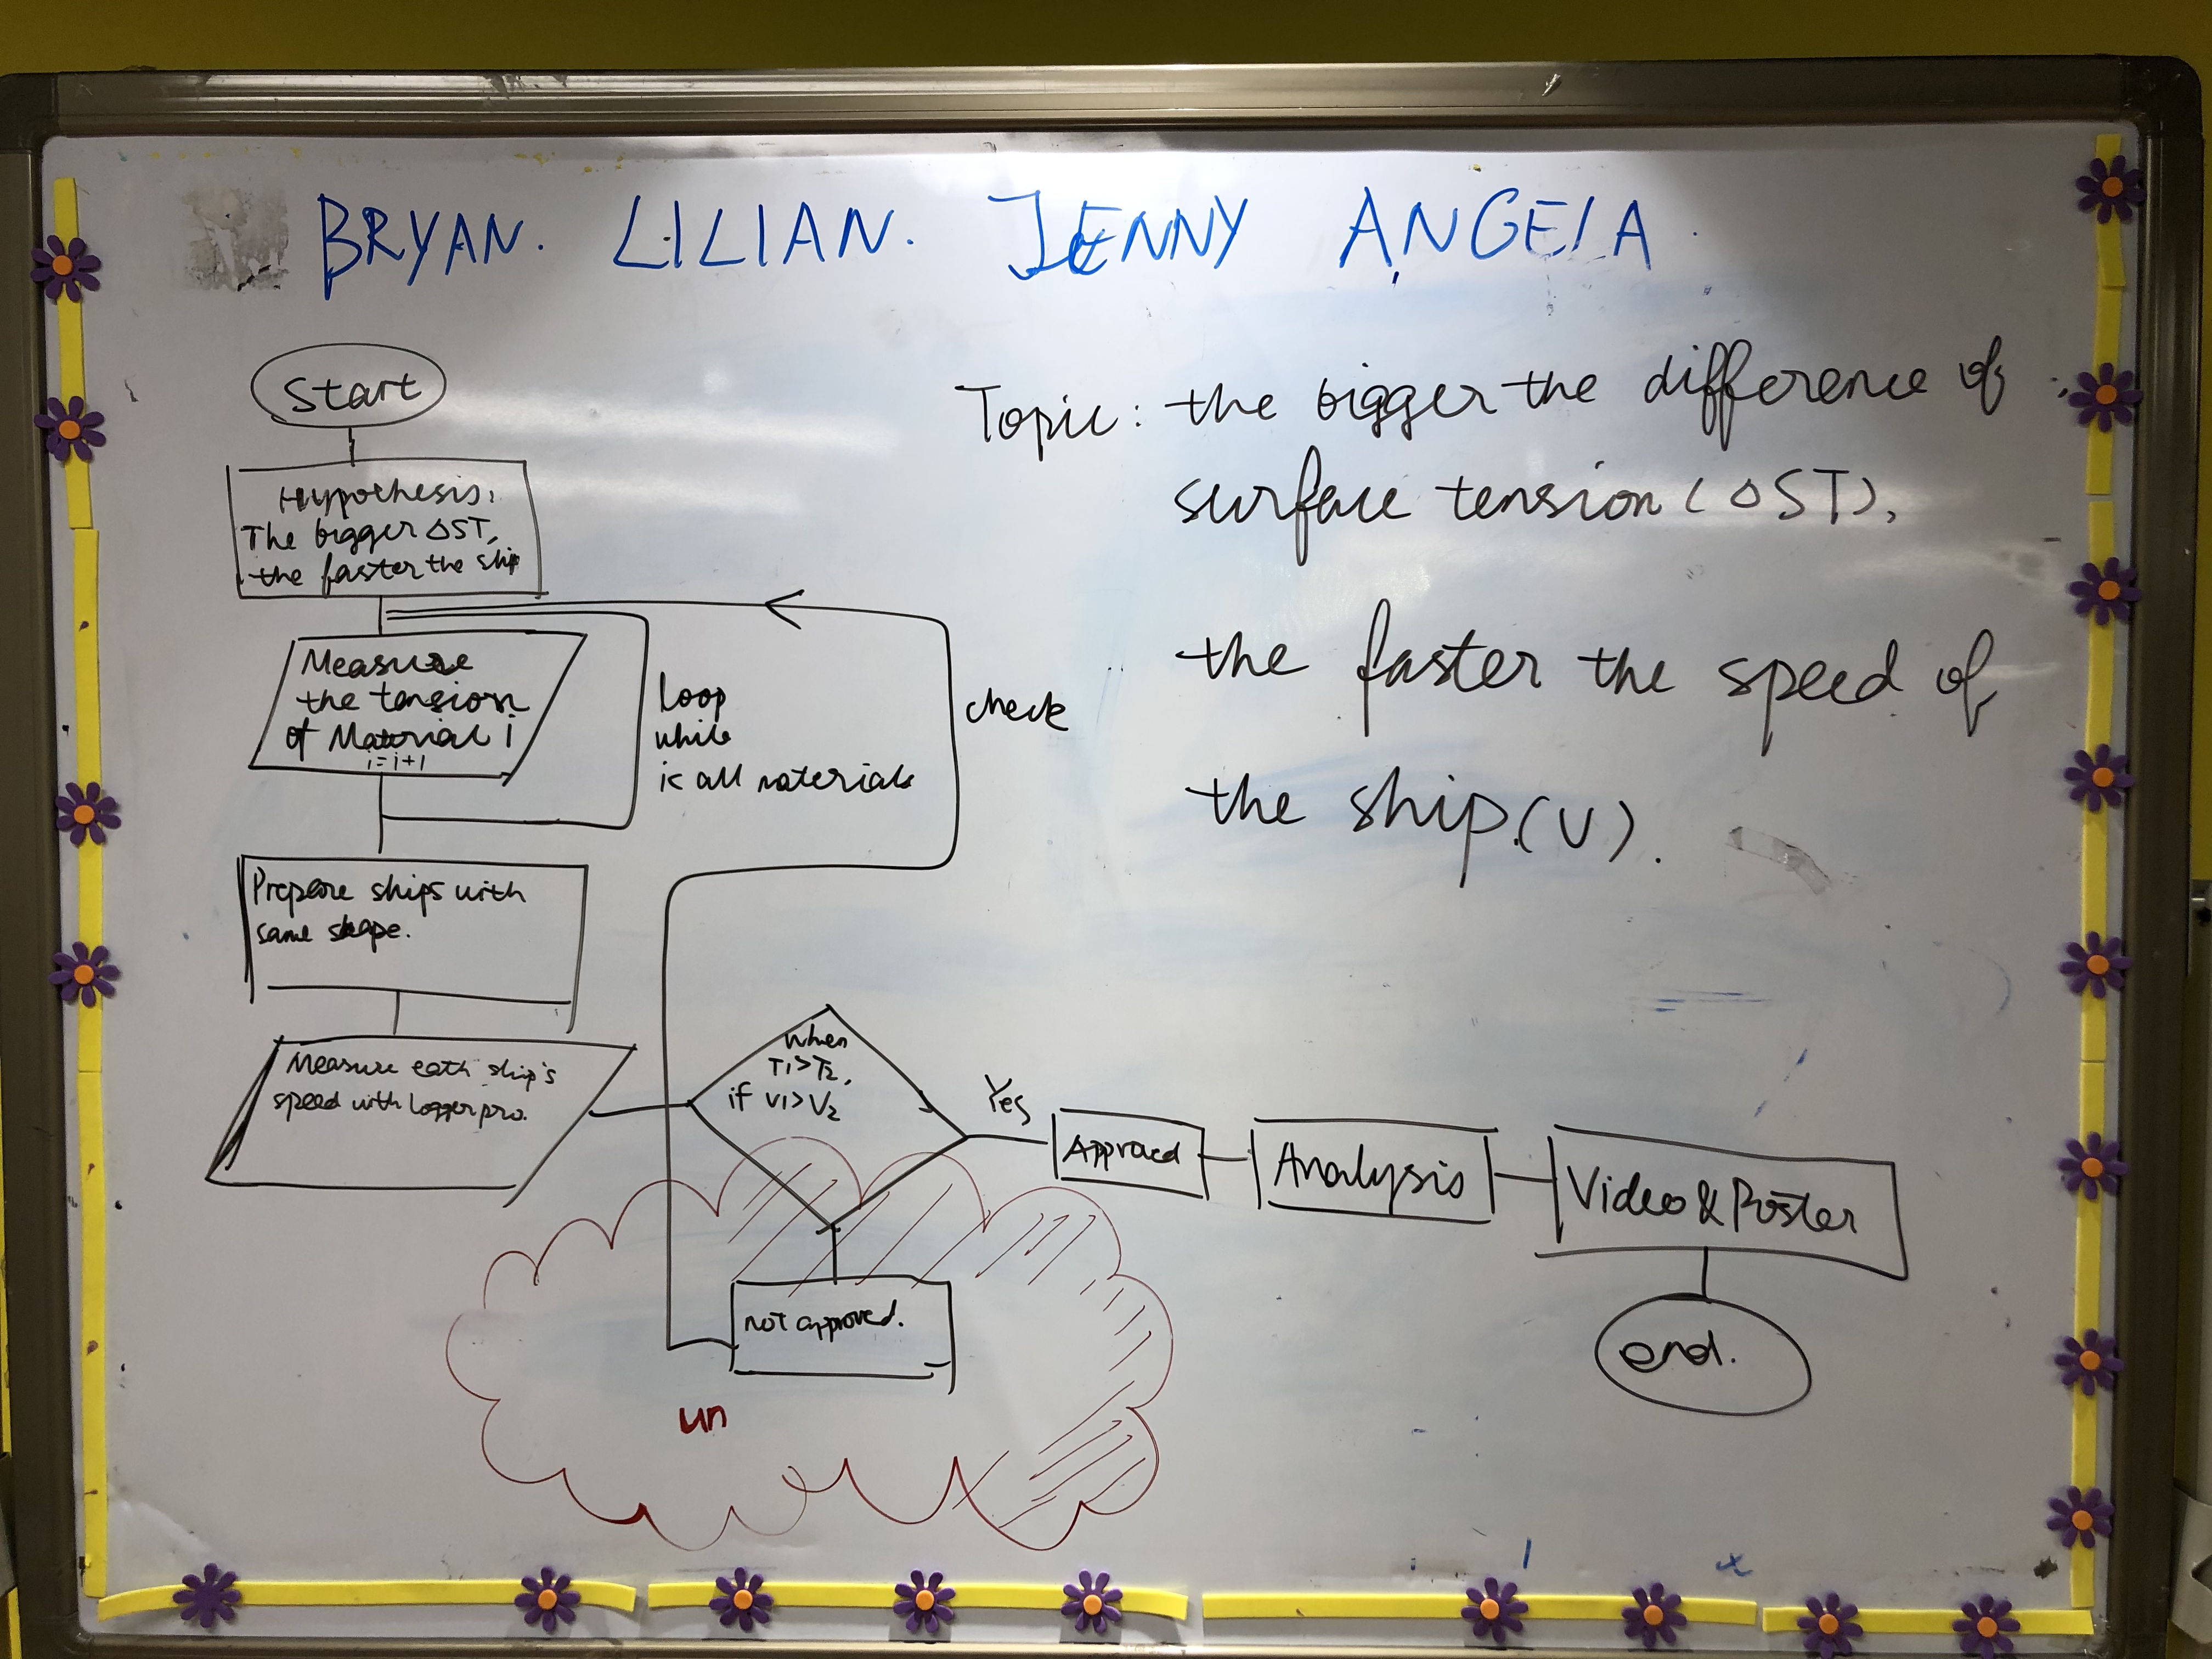 BRYAN. LILIAN. JENNY ANGELA
Start
Hypothesis:
The bigger △ST,
the faster the ship
Measure
the tension
of Material i
i=i+1
Loop
while
is all materials
check
Prepare ships with
same shape.
Measure eath ship's
speed with Loggerpro.
When
T1>T2,
if V1>V2
Yes
Approved
Analysis
Video & Poster
end.
not approved.
un
Topic: the bigger the difference of
surface tension (△ST),
the faster the speed of
the ship.(V).